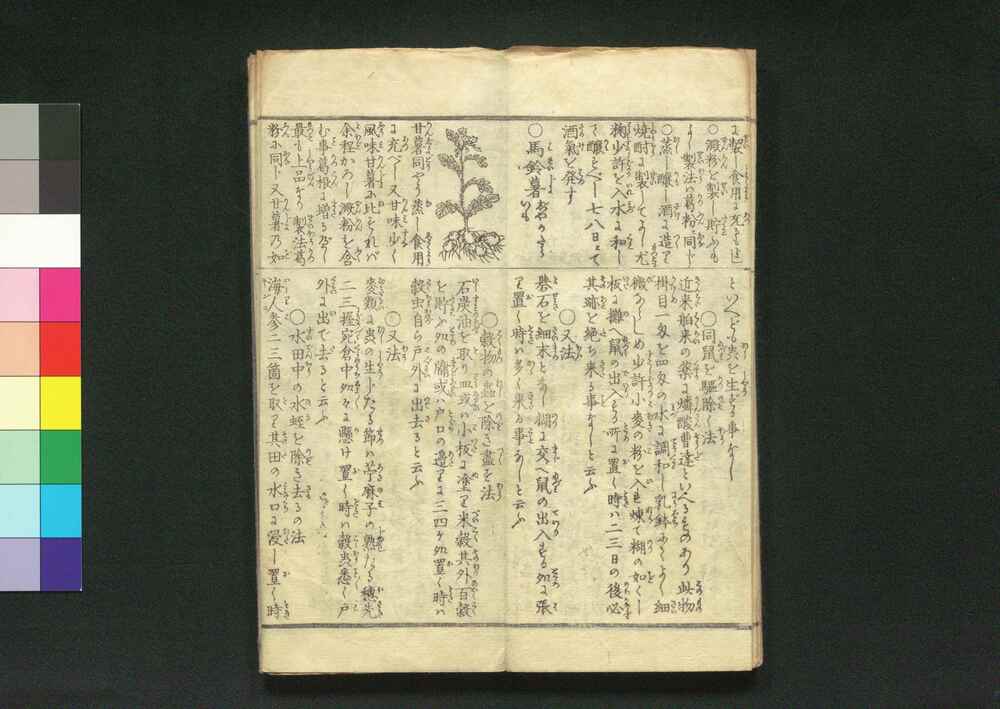 に製し食用に充るも述し
○澱粉を製し貯ふるも
よし製法は葛粉に同じ
○蒸し釀し酒に造るべし
焼酎に製してよし尤
麹少許を入水に和し
て釀すべし七八日にて
酒氣を発す
○馬鈴薯
甘薯同やう蒸し食用
に充べし又甘味少く
風味甘薯に比すれバ
余程かろし澱粉を含
む事葛根に増る故に
最も上品なり製法葛
粉に同じ又甘薯乃如
といへども虫を生ずる事なし
○同鼠を駆除く法
近来舶来の薬に燐酸曹達といへるものあり此物
樹目一匁を四匁の水に調和し乳鉢にてよく細
織ならしめ少許小麦の粉を入れ煉て糊の如くし
板に攤へ鼠の出入する所に置く時ハ二三日の後必
其跡を絶ち来る事なしと云ふ
○又法
礬石を細末となし糊に交へ鼠の出入する処に張
て置く時は多く来る事なしと云ふ
○穀物の蟲を除き盡す法
石炭油を取り皿或ハ小板に塗り米穀其外百穀
を貯ふ処の扉或ハ戸口の邉りに三四ケ処置く時ハ
穀虫自ら戸外に出去ると云ふ
○又法
麦類に虫の生ぶたる節ハ苧麻子の熟たる穂先
二三握宛倉中処々に懸け置く時は穀虫悉く戸
外に出て去ると云ふ
○水田中の水蛭を除き去るの法
海人参二三箇を取り其田の水口に浸し置く時